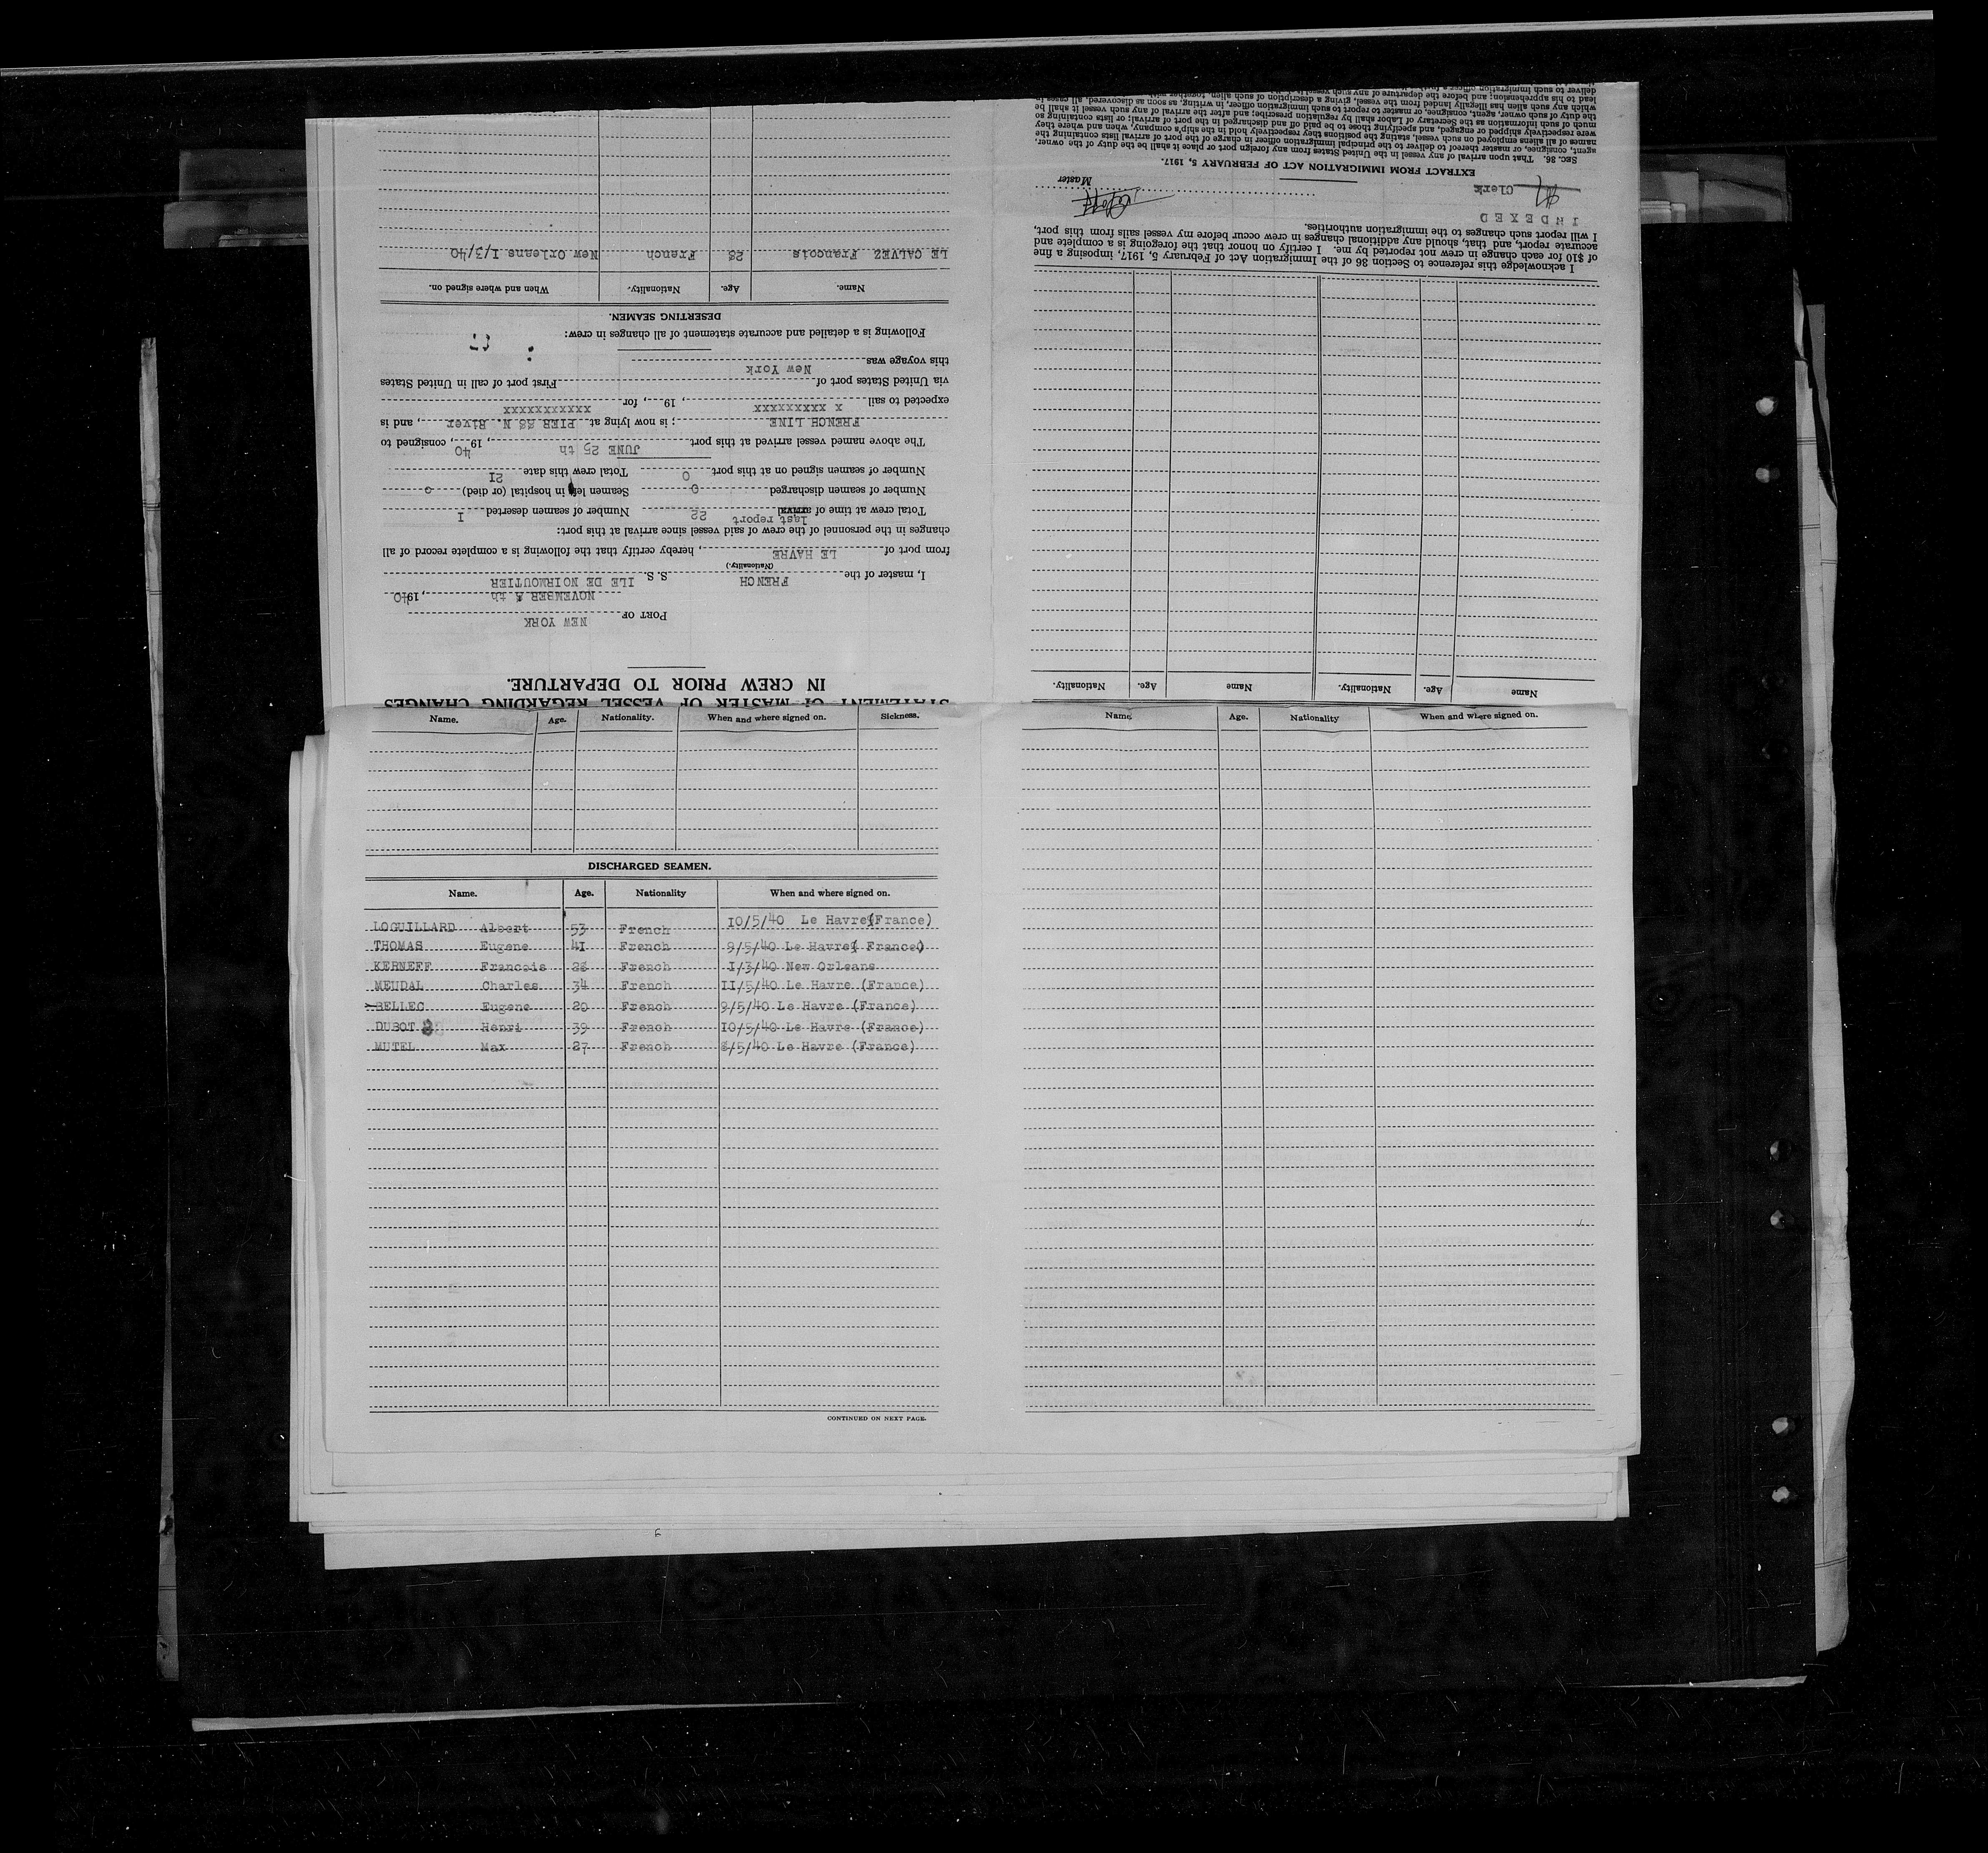 STATEMENT OF MASTER OF VESSEL REGARDING CHANGES
IN CREW PRIOR TO DEPARTURE.
PORT OF NEW YORK
NOVEMBER th, 1940
I, master of the FRENCH S. S. ILE DE NOIRMOUTIER
(Nationality.)
from port of LE HAVRE, hereby certify that the following is a complete record of all
changes in the personnel of the crew of said vessel since arrival at this port:
last report
Total crew at time of arrival 22 Number of seamen deserted I
Number of seamen discharged 0 Seamen left in hospital (or died) 0
Number of seamen signed on at this port 0 Total crew this date 2I
The above named vessel arrived at this port JUNE 25 th, 1940, consigned to
FRENCH LINE; is now lying at PIER 88 N. River, and is
expected to sail x xxxxxxxxx, 19 , for xxxxxxxxxxx
via United States port of First port of call in United States
this voyage was New York
Following is a detailed and accurate statement of all changes in crew:
DESERTING SEAMEN.
Name. Age. Nationality. When and where signed on.
LE CALVEZ Francois 28 French New Orleans I/3/40
Name Age. Nationality. Name Age. Nationality.
I acknowledge this reference to Section 36 of the Immigration Act of February 5, 1917, imposing a fine
of $10 for each change in crew not reported by me. I certify on honor that the foregoing is a complete and
accurate report, and that, should any additional changes in crew occur before my vessel sails from this port,
I will report such changes to the immigration authorities.
INDEXED
Clerk
Master
EXTRACT FROM IMMIGRATION ACT OF FEBRUARY 5, 1917.
Sec. 36. That upon arrival of any vessel in the United States from any foreign port or place it shall be the duty of the owner,
agent, consignee, or master thereof to deliver to the principal immigration officer in charge of the port of arrival lists containing the
names of all aliens employed on such vessel, stating the positions they respectively hold in the ship's company, when and where they
were respectively shipped or engaged, and specifying those to be paid off and discharged in the port of arrival; or lists containing so
much of such information as the Secretary of Labor shall by regulation prescribe; and after the arrival of any such vessel it shall be
the duty of such owner, agent, consignee, or master to report to such immigration officer, in writing, as soon as discovered, all cases in
which any such alien has illegally landed from the vessel, giving a description of such alien, together with
lead to his apprehension; and before the departure of any such vessel
deliver to such immigration officer a
Name. Age. Nationality. When and where signed on. Sickness.
DISCHARGED SEAMEN.
Name. Age. Nationality When and where signed on.
LOGUILLARD Albert 53 French 10/5/40 Le Havre (France)
THOMAS Eugene 41 French 9/5/40 Le Havre ( France)
KERNEFF Francois 28 French I/3/40 New Orleans
MEUDAL Charles 34 French II/5/40 Le Havre (France)
BELLEC Eugene 20 French 9/5/40 Le Havre (France)
DUBOT Henri 39 French I0/5/40 Le Havre (France)
MUTEL Max 27 French 8/5/40 Le Havre (France)
CONTINUED ON NEXT PAGE.
Name Age. Nationality When and where signed on.